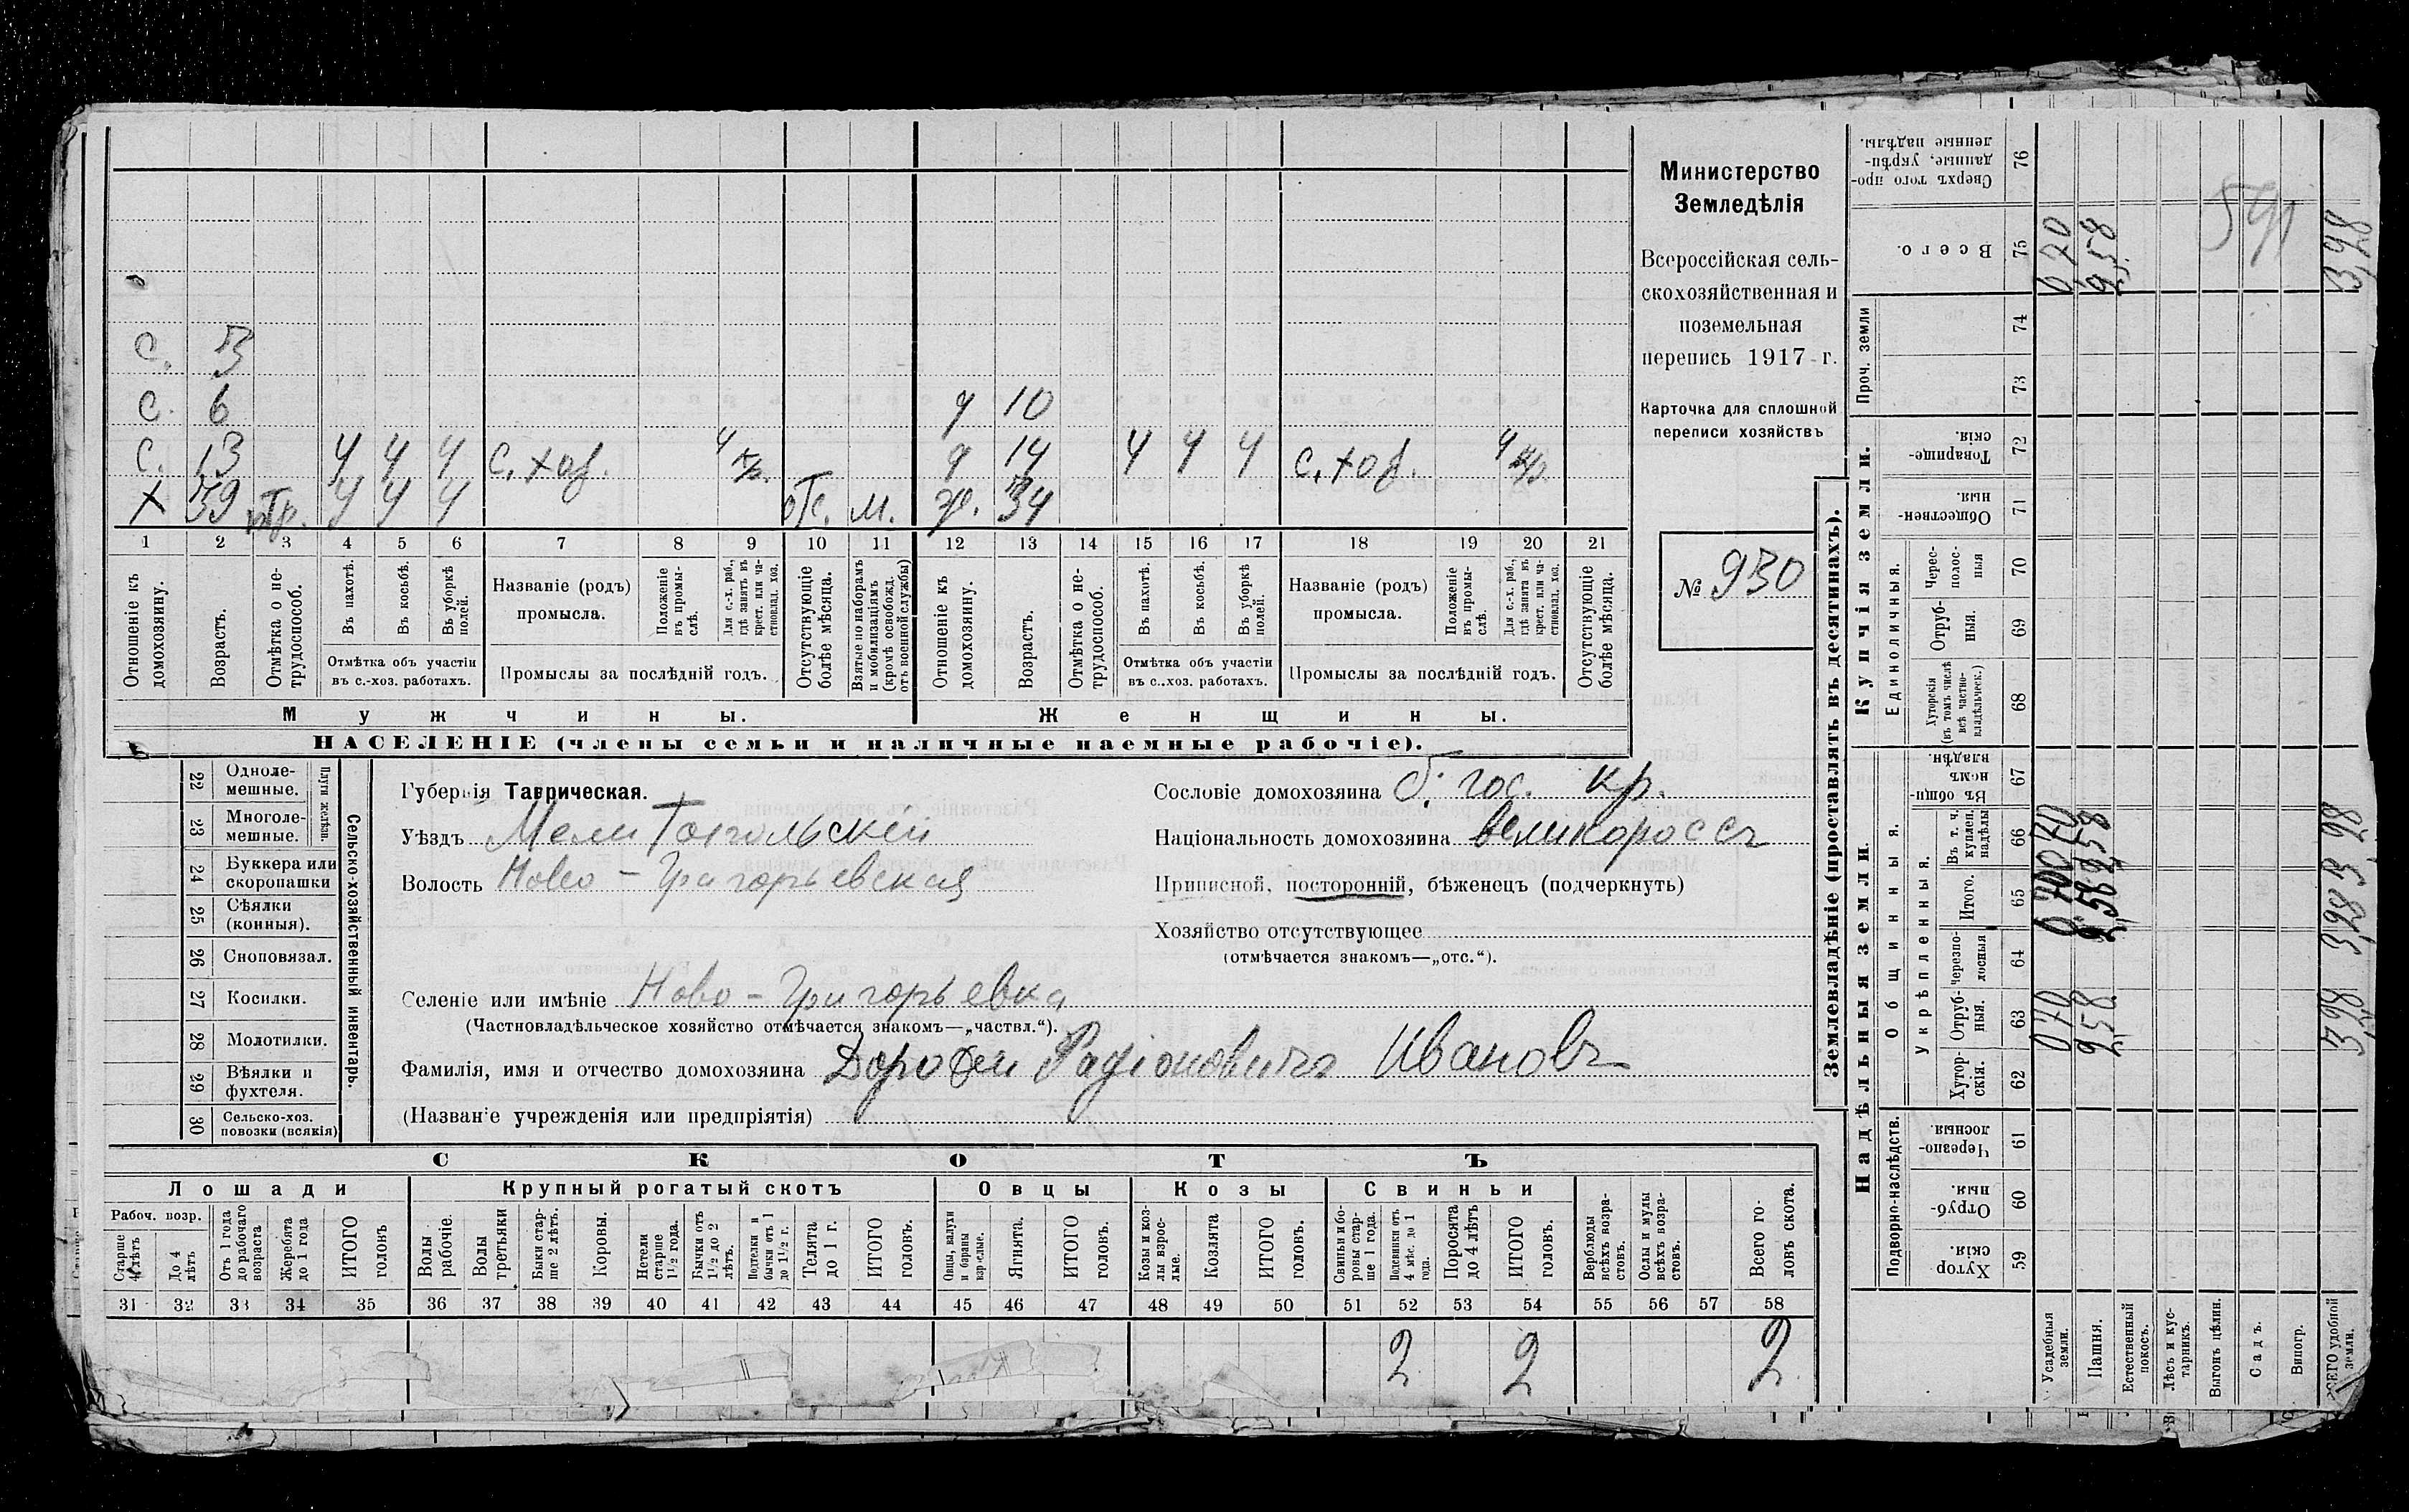 Министерство
Земледѣлія
Всероссійская сель-
скохозяйственная и
поземельная
перепись 1917 г.
Карточка для сплошной
переписи хозяйствъ
№ 930
с. 3
с. 6 д 10
с. 13 ч ч ч с. хоз. ч кр. д 14 ч ч ч с. хоз. ч кр.
х 39 ч ч ч отс. м. ж. 34
1 2 3 4 5 6 7 8 9 10 11 12 13 14 15 16 17 18 19 20 21
Отношеніе къ домохозяину.
Возрастъ.
Отмѣтка о не-трудоспособ.
Въ пахотѣ.
Въ косьбѣ.
Въ уборкѣ полей.
Отмѣтка объ участіи
въ с.-хоз. работахъ.
Названіе (родъ)
промысла.
Положеніе въ промы-слѣ.
Для с.-х. раб., гдѣ занятъ въ крест. или ча-стновлад. хоз.
Промыслы за послѣдній годъ.
Отсутствующіе болѣе мѣсяца.
Взятые по наборамъ и мобилизаціямъ (кромѣ освобожд. отъ военной службы)
Отношеніе къ домохозяину.
Возрастъ.
Отмѣтка о не-трудоспособ.
Въ пахотѣ.
Въ косьбѣ.
Въ уборкѣ полей.
Отмѣтка объ участіи
въ с..хоз. работахъ.
Названіе (родъ)
промысла.
Положеніе въ промы-слѣ.
Для с.-х. раб., гдѣ занята въ крест. или ча-стновлад. хоз.
Промыслы за послѣдній годъ.
Отсутствующіе болѣе мѣсяца.
Мужчины. Женщины.
НАСЕЛЕНІЕ (члены семьи и наличные наемные рабочіе).
Сельско-хозяйственный инвентарь.
Плуги желѣзн.
22 Одноле-мешные.
23 Многоле-мешные.
24 Буккера или скоропашки
25 Сѣялки (конныя).
26 Сноповязал.
27 Косилки.
28 Молотилки.
29 Вѣялки и фухтеля.
30 Сельско-хоз. повозки (всякія)
Губернія Таврическая.
Уѣздъ Мелитопольскій
Волость Ново-Григорьевская
Селеніе или имѣніе Ново-Григорьевка
(Частновладѣльческое хозяйство отмѣчается знакомъ—„частвл.“).
Фамилія, имя и отчество домохозяина Дорофей Радіоновичъ Ивановъ
(Названіе учрежденія или предпріятія)
Сословіе домохозяина б. гос. кр.
Національность домохозяина великороссъ
Приписной, посторонній, бѣженецъ (подчеркнуть)
Хозяйство отсутствующее
(отмѣчается знакомъ—„отс.“).
СКОТЪ
Лошади Крупный рогатый скотъ Овцы Козы Свиньи
Рабоч. возр.
Старше 4 лѣтъ
До 4 лѣтъ
Отъ 1 года до рабочаго возраста
Жеребята до 1 года
ИТОГО головъ
Волы рабочіе.
Волы третьяки
Быки стар-ше 2 лѣтъ.
Коровы.
Нетели старше 1½ года.
Бычки отъ 1½ до 2 лѣтъ.
Подтелки и бычки отъ 1 до 1½ г.
Телята до 1 г.
ИТОГО головъ.
Овцы, валухи и бараны взрослые.
Ягнята.
ИТОГО головъ.
Козы и коз-лы взрос-лые.
Козлята
ИТОГО головъ.
Свиньи и бо-ровы стар-ше 1 года.
Подсвинки отъ 4 мѣс. до 1 года.
Поросята до 4 лѣтъ
ИТОГО головъ.
Верблюды всѣхъ возра-стовъ.
Ослы и мулы всѣхъ возра-стовъ.
Всего го-ловъ скота.
31 32 33 34 35 36 37 38 39 40 41 42 43 44 45 46 47 48 49 50 51 52 53 54 55 56 57 58
2 2 2
Землевладѣніе (проставлять въ десятинахъ).
Надѣльныя земли. Купчія земли. Проч. земли
Подворно-наслѣдств. Общинныя. Единоличныя.
Укрѣпленныя.
59 Хутор-скія.
60 Отруб-ныя.
61 Черезпо-лосныя.
62 Хутор-скія.
63 Отруб-ныя.
64 черезпо-лосныя
65 Итого.
66 Въ т. ч. куплен. надѣлы
67 Въ общи-номъ владѣн.
68 Хуторскія (въ томъ числѣ всѣ частно-владѣльческ.)
69 Отруб-ныя.
70 Черес-полос-ныя
71 Обществен-ныя.
72 Товарище-скія.
73
74
75 Всего.
76 Сверхъ того про-данные, укрѣп-ленные надѣлы.
Усадебныя земли.
Пашня.
Естественный покосъ.
Лѣсъ и кус-тарникъ.
Выгонъ цѣлин.
Садъ.
Виногр.
ВСЕГО удобной земли.
3,98 3,98 3,98 3,98